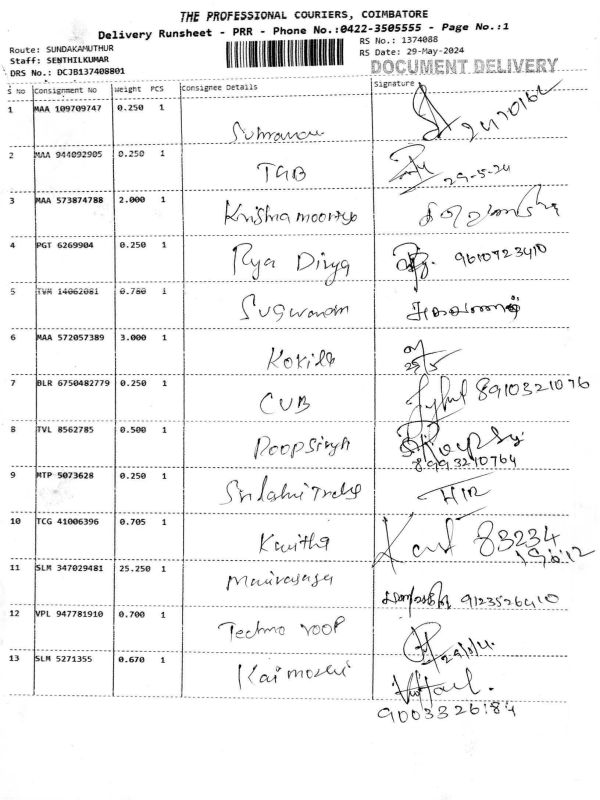 THE PROFESSIONAL COURIERS, COIMBATORE
Delivery Runsheet - PRR - Phone No.:0422-3505555 - Page No.:1
Route: SUNDAKAMUTHUR
RS No.: 1374088
Staff: SENTHILKUMAR
RS Date: 29-May-2024
DRS No.: DCJB137408801
DOCUMENT DELIVERY
S No Consignment No Weight PCS Consignee Details Signature
1 MAA 109709747 0.250 1
2 MAA 944092905 0.250 1
TGB 29-5-24
3 MAA 573874788 2.000 1
Krishna moorthy
4 PGT 6269904 0.250 1
Divya 9610723410
5 TVM 14062081 0.780 1
Sugwanam
6 MAA 572057389 3.000 1
Kokila 29/5
7 BLR 6750482779 0.250 1
CUB 8910321076
8 TVL 8562785 0.500 1
Roopsingh
8993210764
9 MTP 5073628 0.250 1
10 TCG 41006396 0.705 1
Kavitha 83234
11 SLM 347029481 25.250 1
9123526410
12 VPL 947781910 0.700 1
Techno roof
13 SLM 5271355 0.670 1
Kaimozhi
9003326184